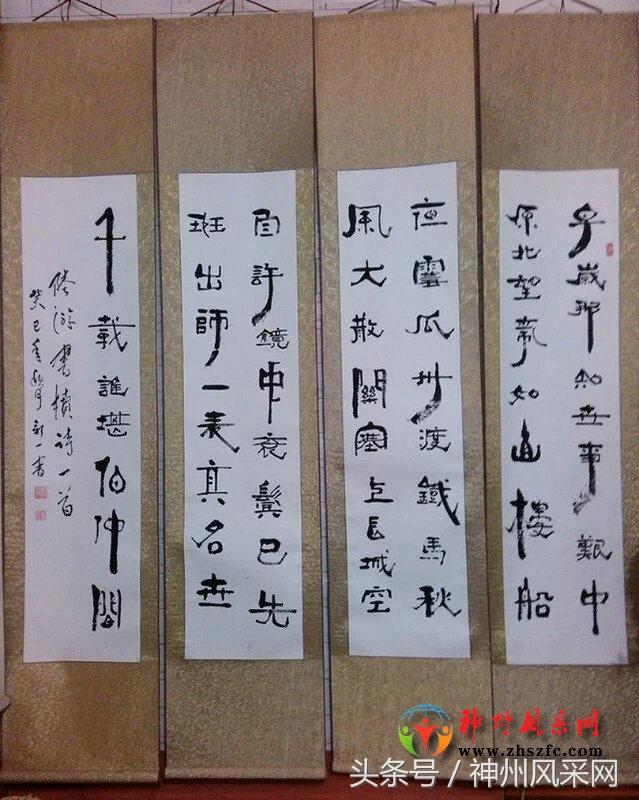 早歲那知世事艱中
原北望氣如山樓船
夜雪瓜州渡鐵馬秋
風大散關塞上長城空
自許鏡中衰鬢已先
班出師一表真名世
千載誰堪伯仲間
陸游書憤詩一首
癸巳年
神州风采网
www.zhszfc.com
头条号 / 神州风采网